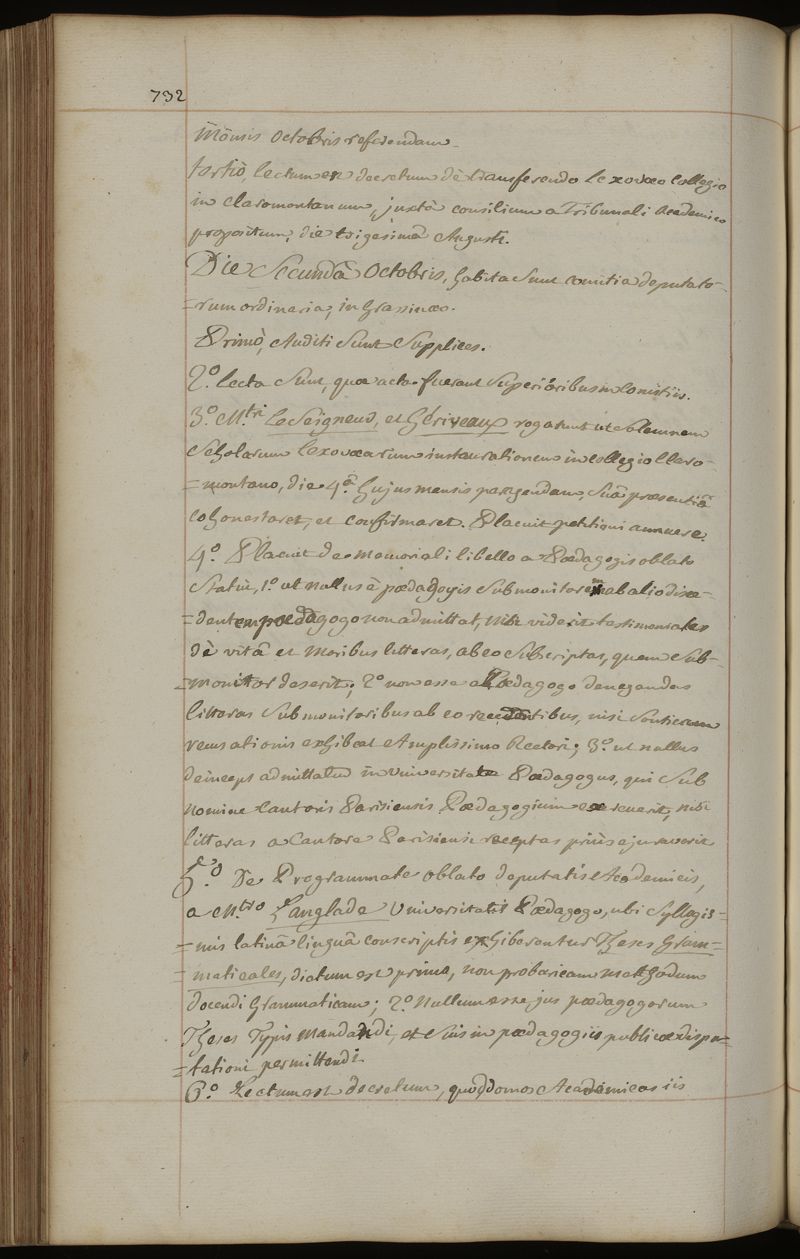 732
Mensis Octobris referendam.
tertiò, lectum est decretum de transferendo Lexovæo Collegio
in Claromontanum, juxtà consilium a Tribunali Academico
propositum, die trigesimâ Augusti.
Die Secundâ Octobris, habita sunt comitia deputato-
=rum ordinaria, in Grassinæo.
Primò, Auditi sunt Supplices.
2.º lecta sunt, quæ acta fuerant Superioribus in Comitiis.
3.º M.tri Le Seigneur, et Gériveaux rogarunt ut solemnem
Scholarum Lexovæarum instaurationem in collegio Claro-
=montano, die 4.â hujus mensis peragendam, suâ præsentiâ
cohonestaret, et confirmaret. Placuit petitioni annuere.
4.º Placuit de memoriali libello a Pædagogis oblato
Statui, 1.º ut nullus è pædagogis Submonitorem ab alio disce-
=dentem pædagogo non admittat, nisi viderit testimoniales
de vitâ et moribus litteras, ab eo subscriptas, quem Sub-
=monitor deserit; 2.º non esse a Pædagogo denegandas
litteras Submonitoribus ab eo recedentibus, nisi sonticam
recusationis exhibeat Amplissimo Rectori; 3.º ut nullus
deinceps admittatur in Universitate Pædagogus, qui sub
nomine Cantoris Parisiensis Pædagogium exercuerit, nisi
litteras a Cantore Parisiensi receptas priùs ejuraverit
5.º De Programmate oblato deputatis Academicis,
a M.tro Langlade Universitatis Pædagogo, ubi Syllogis-
=mis latinâ linguâ conscriptis exhiberentur Theses Gram=
=maticales, dictum est primo, non probari eam methodum
docendi Grammaticam; 2.º nullum esse jus pædagogorum
Theses Typis mandandi, et suis in pædagogiis publicæ dispu=
=tationi permittendi.
6.º Lectum est decretum, quod domos Academicas iis